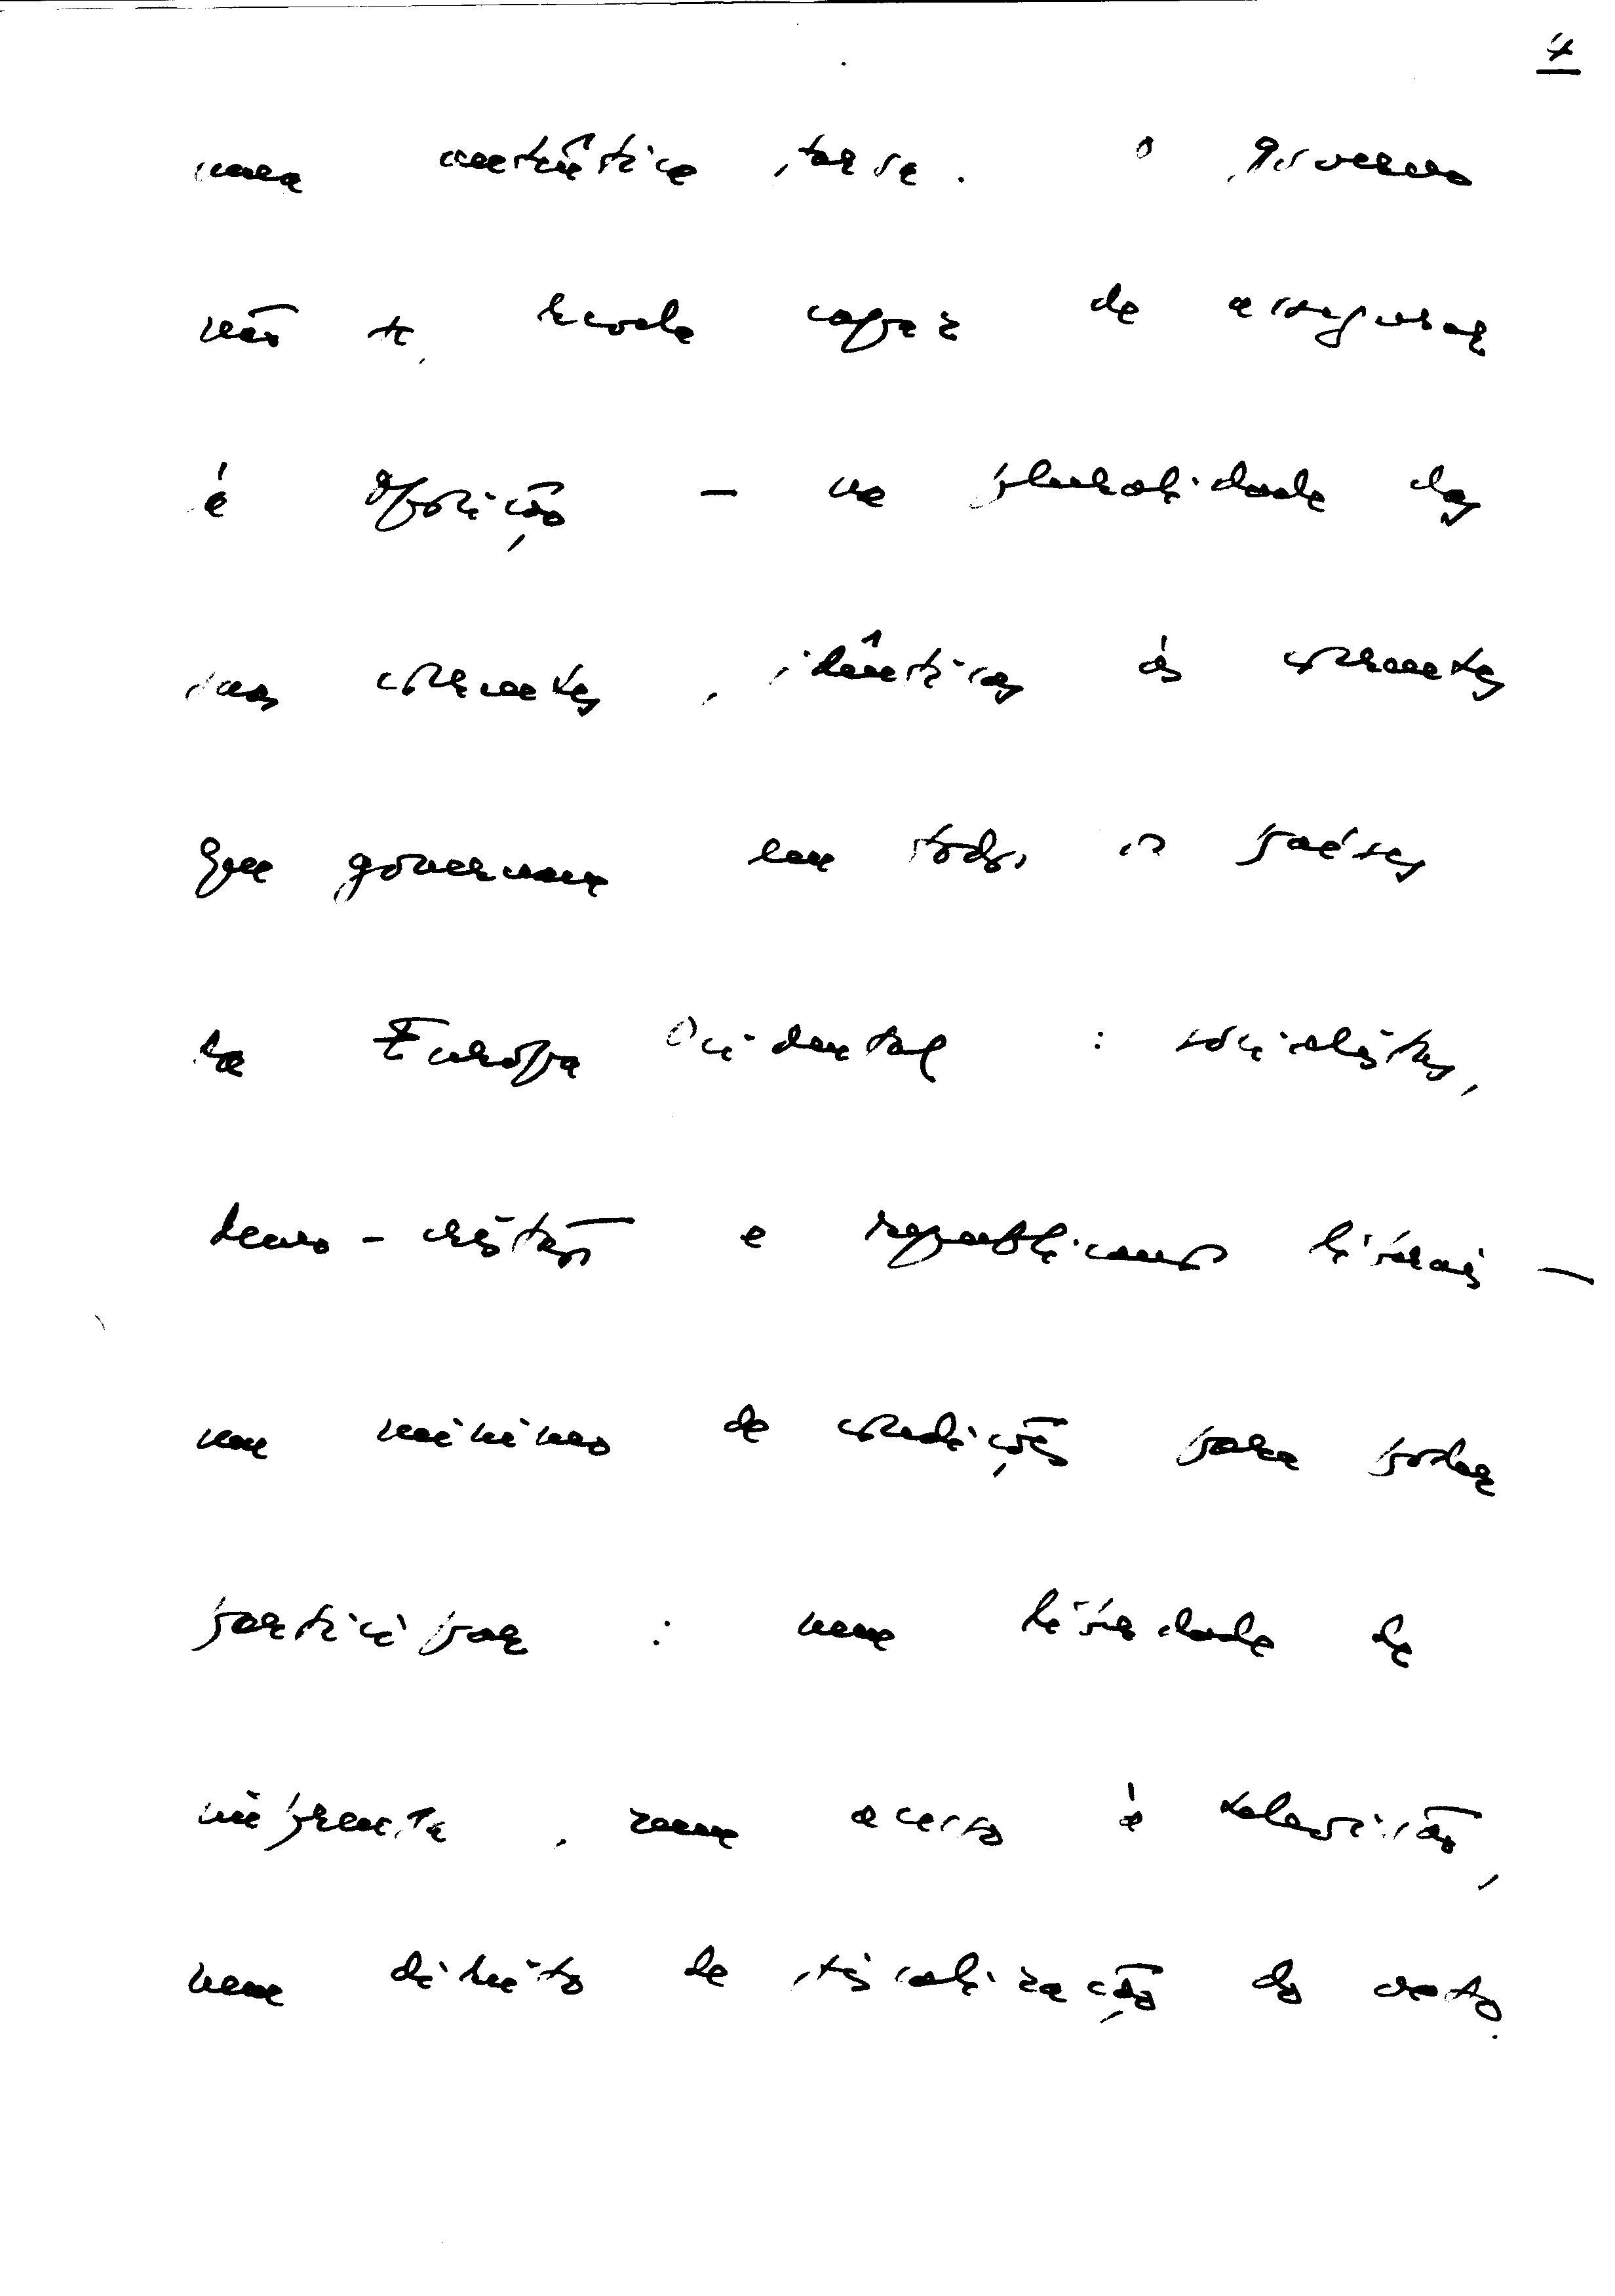 4
uma autêntica farsa. O governo
não se revela capaz de assegurar
à oposição — na pluralidade das
suas correntes, idênticas às correntes
que governam em todos os países
da Europa Ocidental: socialistas,
demo-cristãos e republicanos liberais —
um mínimo de condições para poder
participar: nem liberdade de
imprensa, nem acesso à televisão,
nem direito de fiscalização do acto.